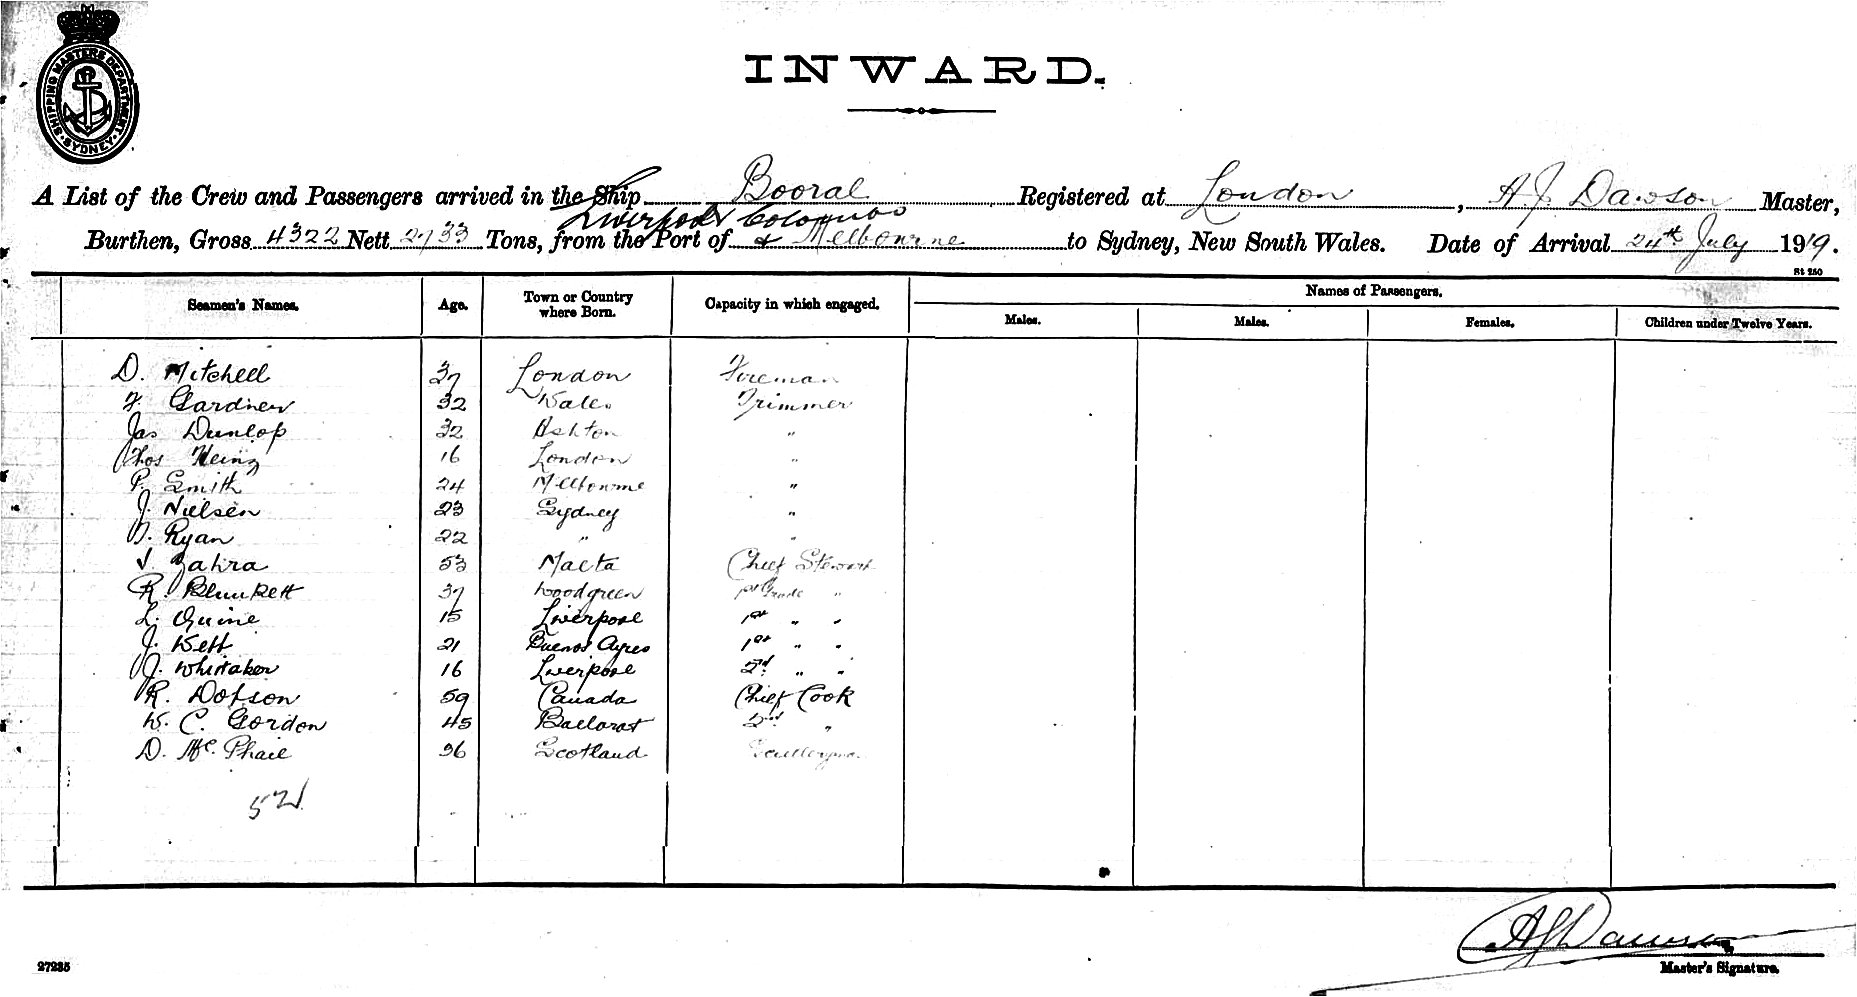 SHIPPING MASTERS DEPARTMENT
SYDNEY
INWARD.
A List of the Crew and Passengers arrived in the Ship Booral Registered at London, A J Dawson Master,
Liverpool Colombo
Burthen, Gross 4322 Nett 2733 Tons, from the Port of & Melbourne to Sydney, New South Wales. Date of Arrival 24th July 1919.
St 250
Seamen's Names. Age. Town or Country where Born. Capacity in which engaged. Names of Passengers.
Males. Males. Females. Children under Twelve Years.
D. Mitchell 37 London Fireman
F. Gardner 32 Wales Trimmer
Jas Dunlop 32 Ashton "
Thos Heinz 16 London "
P. Smith 24 Melbourne "
J. Nielsen 23 Sydney "
Ryan 22 " "
Zahra 53 Malta Chief Steward
R. Plunkett 37 Woodgreen 1st Grade "
L. Quine 15 Liverpool 1st " "
J. Webb 21 Buenos Ayres 1st " "
J. Whittaker 16 Liverpool 2d " "
R. Dobson 59 Canada Chief Cook
W. C. Gordon 45 Ballarat 2nd "
D. McPhail 36 Scotland Sculleryman
52
A J Dawson
Master's Signature.
27235